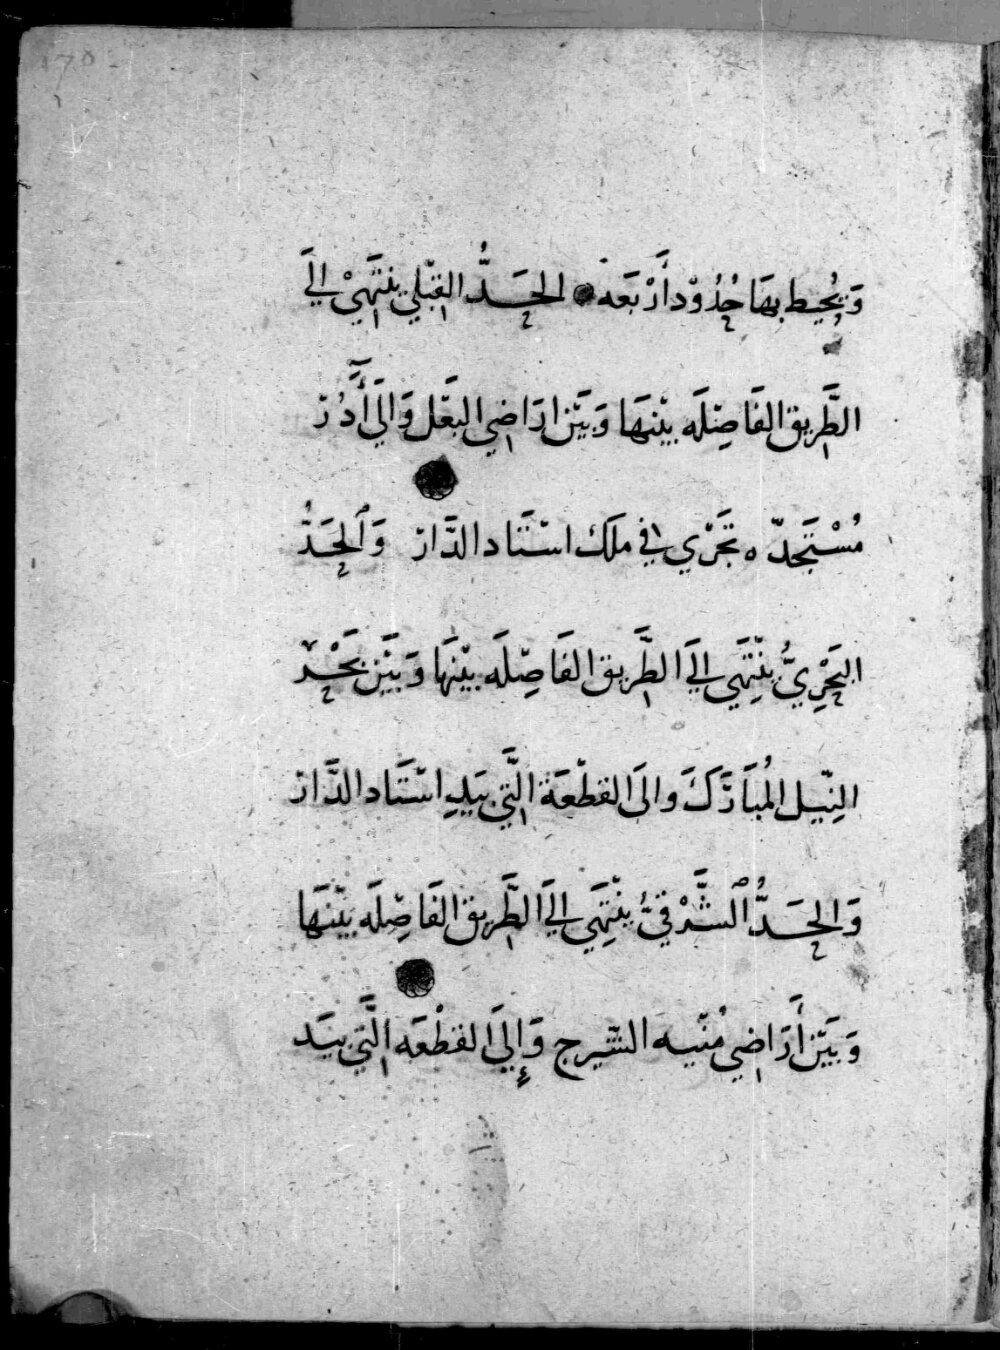 وَيُحِيط بِهَا حُدُوْد أَرْبَعَه الحَدُّ القِبْلِي يَنْتَهِيْ اِلَى
الطَّرِيق الفَاصِلَه بَيْنَهَا وَبَيْنَ ارَاضِي البَغْل وَاِلَى أَدُر
مُسْتَجَدّه تَجْرِي فِي مِلْك اسْتَاد الدَّار وَالحَدُّ
البَحْرِيُّ يَنْتَهِي اِلَى الطَّرِيق الفَاصِلَه بَيْنَهَا وَبَيْنَ بَحْر
النِيْل المُبَارَكَ وَالَى القطْعَة الَّتِي بِيَدِ اسْتَاد الدَّار
وَالحَدُّ الشَّرْقِيُّ يَنْتَهِي اِلَى الطَّرِيق الفَاصِلَه بَيْنَهَا
وَبَيْنَ أَرَاضِي مُنْيه السِّيرج وَإِلَى القطْعَه الَّتِي بِيَد